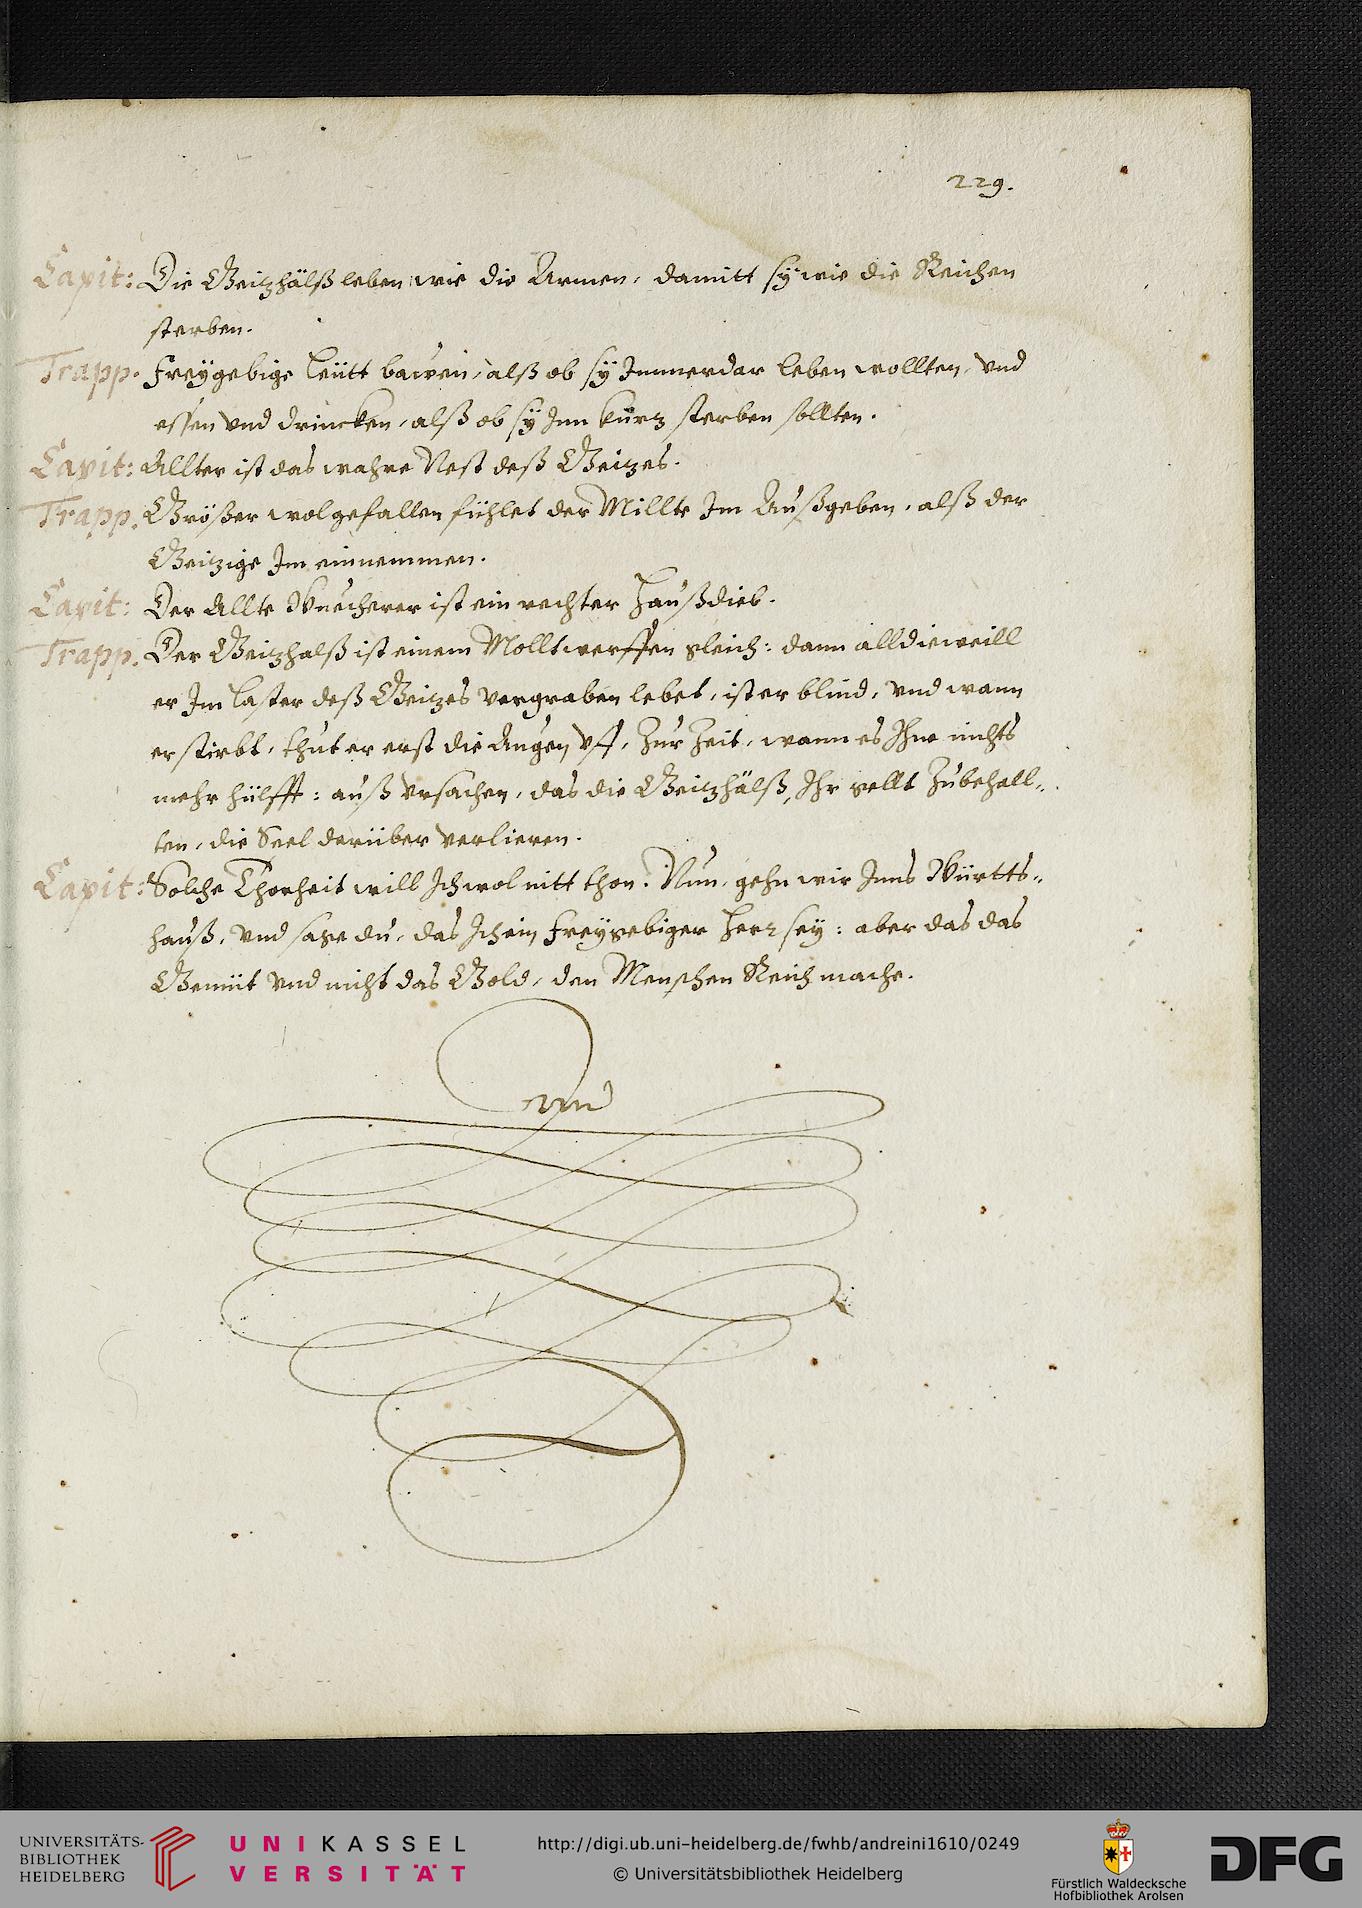 229.
Capit: Die Geitzhälß leben wie die Armen, damitt sÿ wie die Reichen
sterben.
Trapp. Freÿgebige Leütt bawen, alß ob sÿ Immerdar leben wollten, vnd
essen vnd drincken, alß ob sÿ Inn kurz sterben sollten.
Capit: Allter ist das wahre Nest deß Geitzes.
Trapp. Größer wolgefallen fühlet der Millte Im Außgeben, alß der
Geitzige Im einnemmen.
Capit: Der Allte Wuecherer ist ein rechter Haußdieb.
Trapp. Der Geitzhalß ist einem Molltwerffen gleich: dann alldieweill
er Im Laster deß Geitzes vergraben lebet, ist er blind, vnd wann
er stirbt, thut er erst die Augen vff, Zur Zeit, wann es Ihm nichts
mehr hülfft: auß vrsachen, das die Geitzhälß, Ihr gellt Zubehall„
ten, die Seel darüber verlieren.
Capit: Solche Thorheit will Ich wol nitt thon. Nun, gehn wir Inns Württs„
hauß, vnd sage du, das Ich ein freÿgebiger Herr seÿ: aber das das
Gemüt vnd nicht das Gold, den Menschen Reich mache.
UNIVERSITÄTS-
BIBLIOTHEK
HEIDELBERG
UNIKASSEL
VERSITÄT
http://digi.ub.uni-heidelberg.de/fwhb/andreini1610/0249
© Universitätsbibliothek Heidelberg
Fürstlich Waldecksche
Hofbibliothek Arolsen
DFG